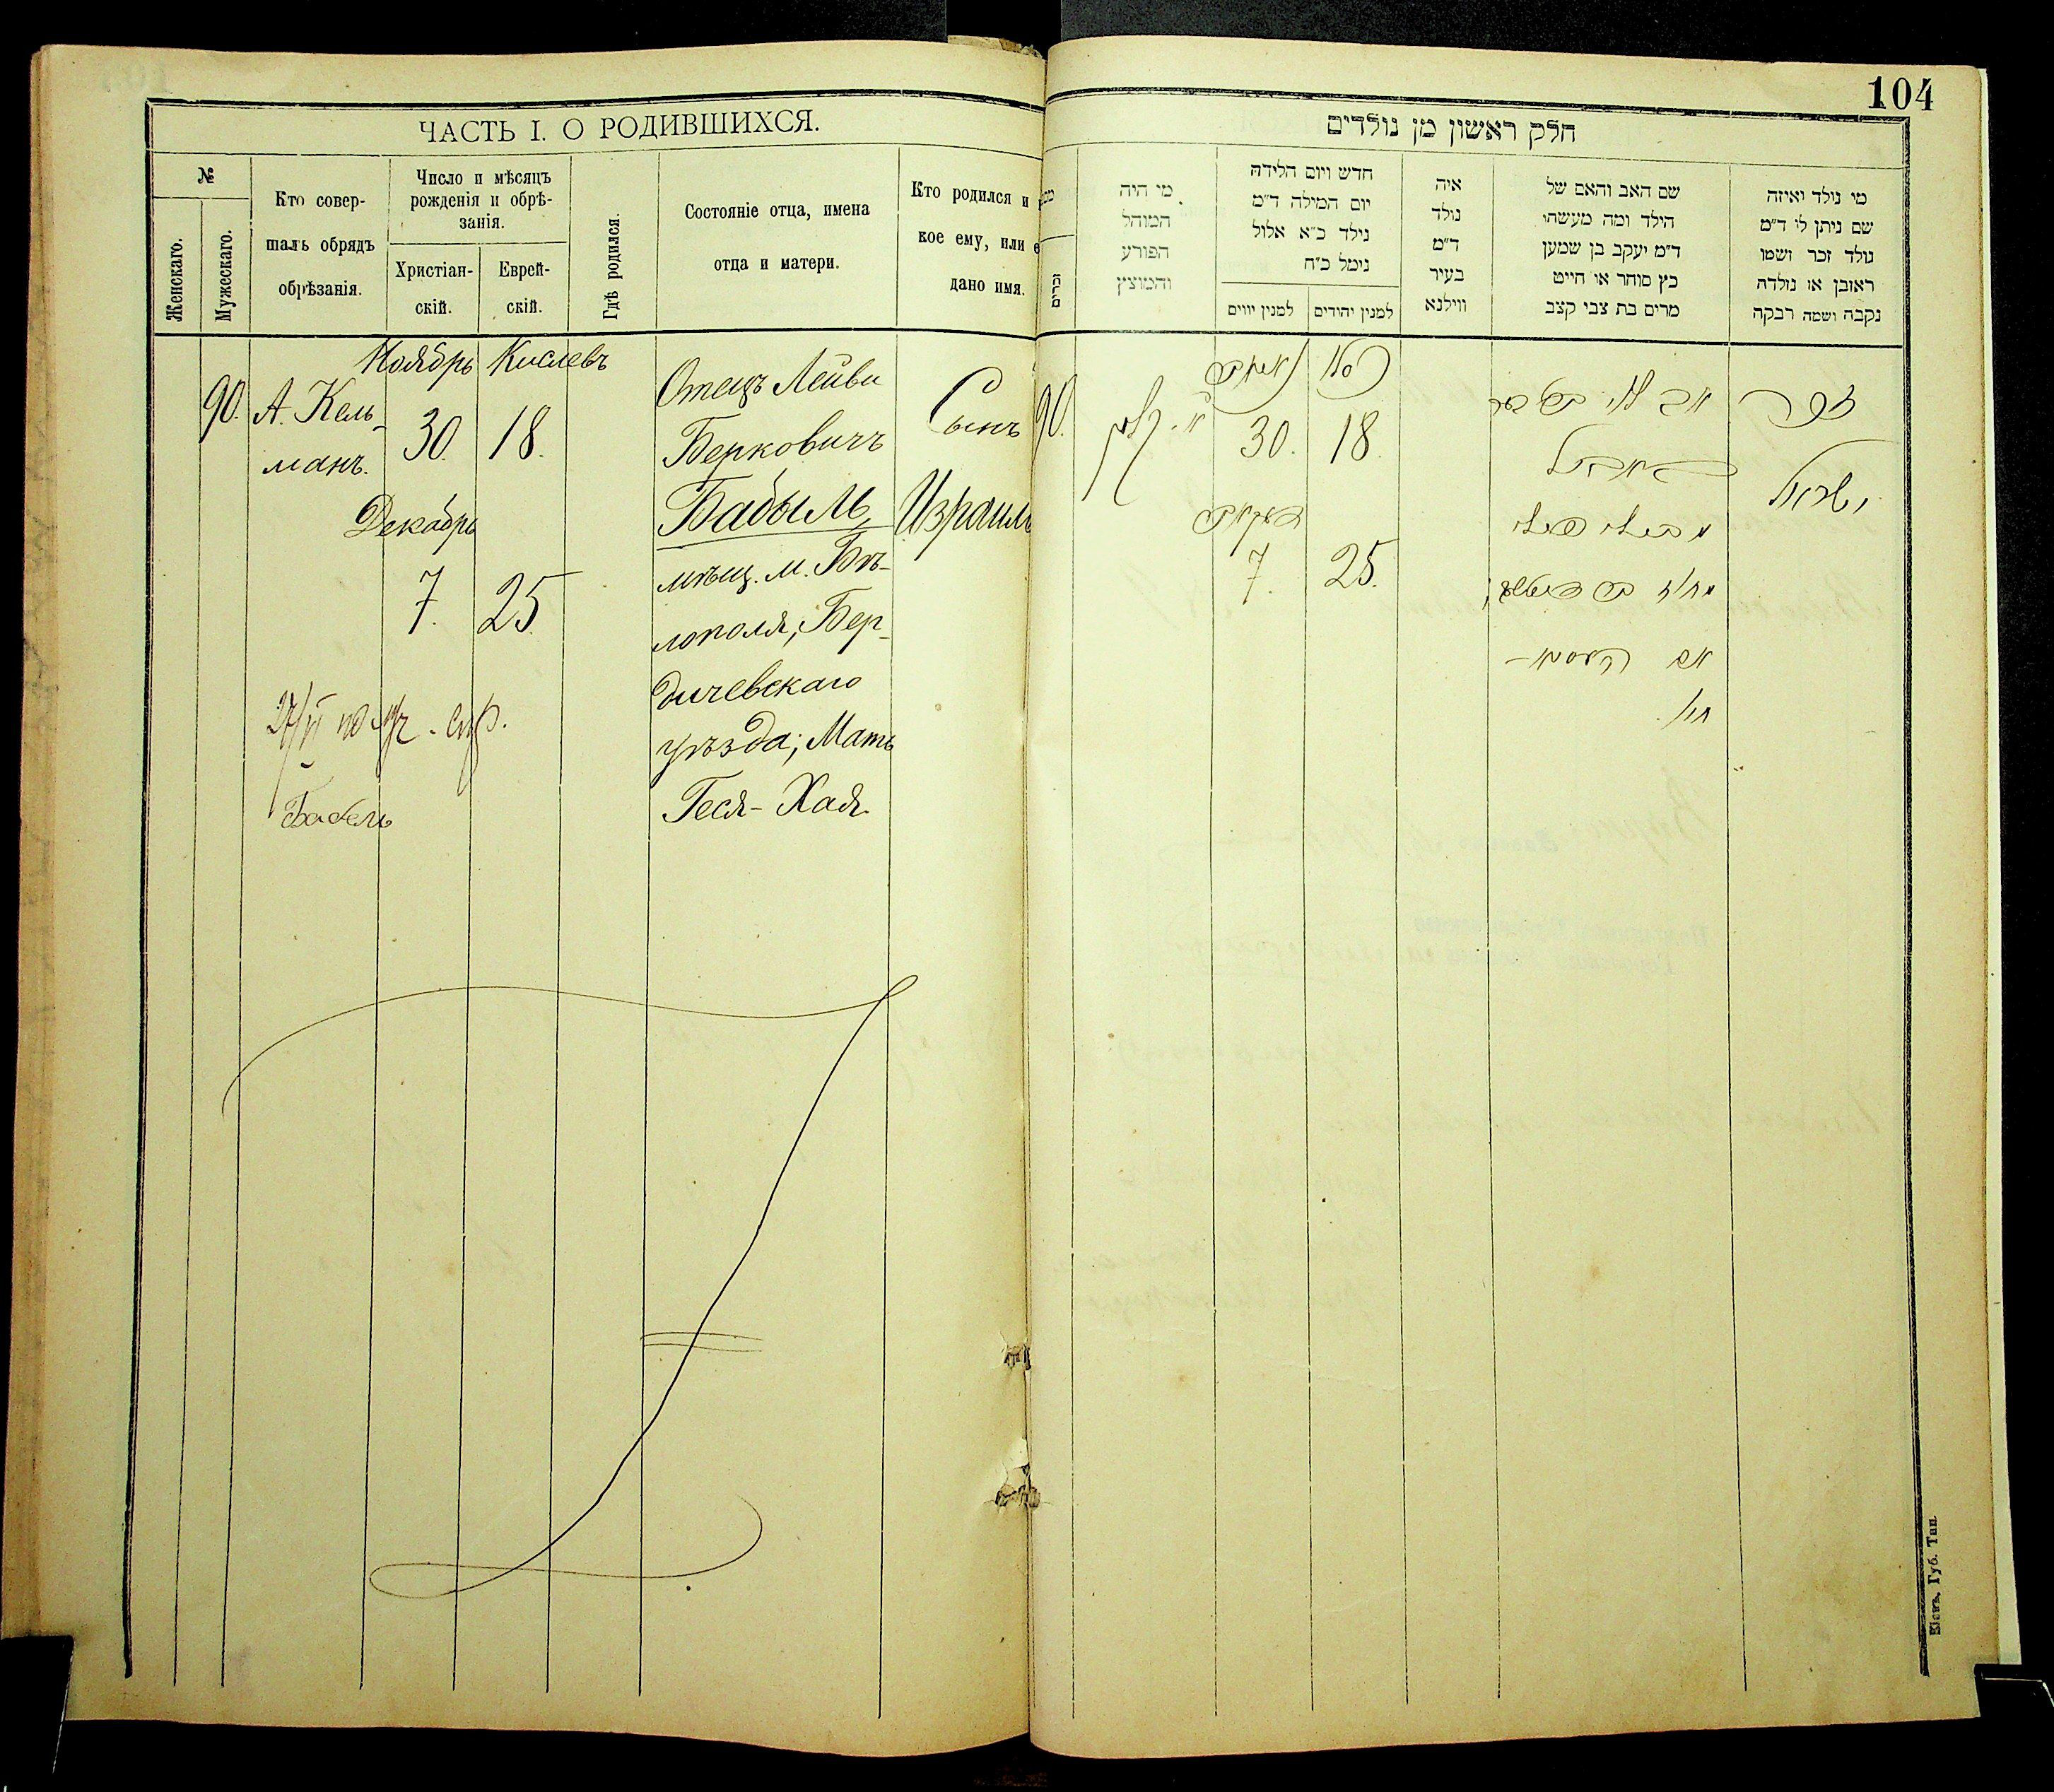 104
ЧАСТЬ I. О РОДИВШИХСЯ.
№
Женскаго.
Мужескаго.
Кто совер-
шалъ обрядъ
обрѣзанія.
Число и мѣсяцъ
рожденія и обрѣ-
занія.
Христіан-
скій.
Еврей-
скій.
Гдѣ родился.
Состояніе отца, имена
отца и матери.
Кто родился и
кое ему, или е
дано имя.
Ноябрь Кислевъ
90. А. Кель-
манъ.
30. 18.
Декабрь
7. 25.
Отецъ Лейви
Берковичъ
Бабыль,
мѣщ. м. Бѣ-
лополя, Бер-
дичевскаго
уѣзда; Мать
Геся-Хая.
Сынъ
Израиль
Бабель
חלק ראשון מן נולדים
זכרים
מי היה
המוהל
הפורע
והמוצץ
חדש ויום הלידה
יום המילה ד״מ
נילד כ״א אלול
נימל כ״ח
למנין יווים
למנין יהודים
איה
נולד
ד״מ
בעיר
ווילנא
שם האב והאם של
הילד ומה מעשהו
ד״מ יעקב בן שמען
כץ סוחר או חייט
מרים בת צבי קצב
מי נולד ואיזה
שם ניתן לו ד״מ
נולד זכר ושמו
ראובן או נולדה
נקבה ושמה רבקה
90.
30. 18.
7. 25.
זכר
ישראל
Кіевъ, Губ. Тип.